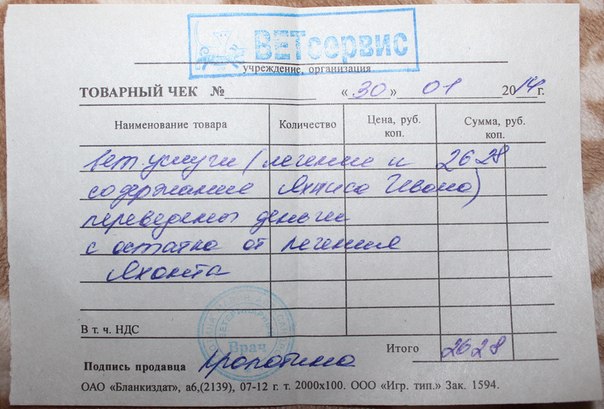 ВЕТсервис
учреждение, организация
ТОВАРНЫЙ ЧЕК № « 30 » 01 2014 г.
Наименование товара Количество Цена, руб. коп. Сумма, руб. коп.
вет. услуги (лечение и 2628
содержание Ивана)
переведены деньги
с остатка от лечения
Яхонта
В т. ч. НДС
Врач
Итого 2628
Подпись продавца
ОАО «Бланкиздат», а6,(2139), 07-12 г. т. 2000х100. ООО «Игр. тип.» Зак. 1594.